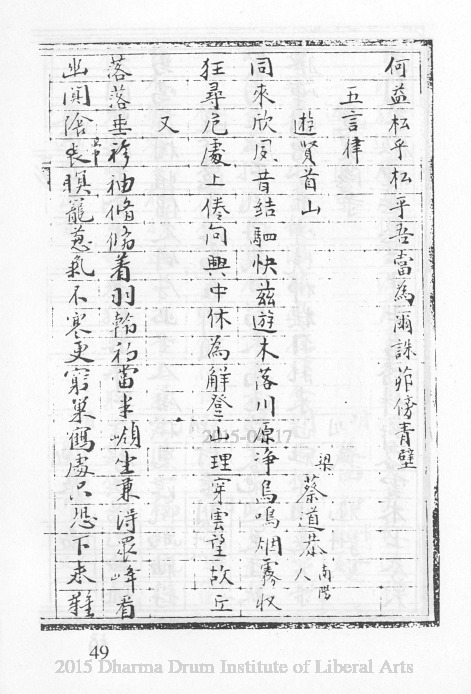 何益松乎松乎吾當為爾誅茆傍青壁
五言律
遊賢首山
梁 蔡道恭 南陽人
同來欣夙昔結駟快茲遊木落川原净鳥鳴烟霧收
狂尋危處上倦向興中休為解登山理穿雲望故丘
又
落落垂衫袖翛翛着羽翰初當半嶺坐兼得眾峰看
幽閴陰長暝籠蔥氣不寒更窮巢鶴處只恐下來難
2015-03-17
49
2015 Dharma Drum Institute of Liberal Arts